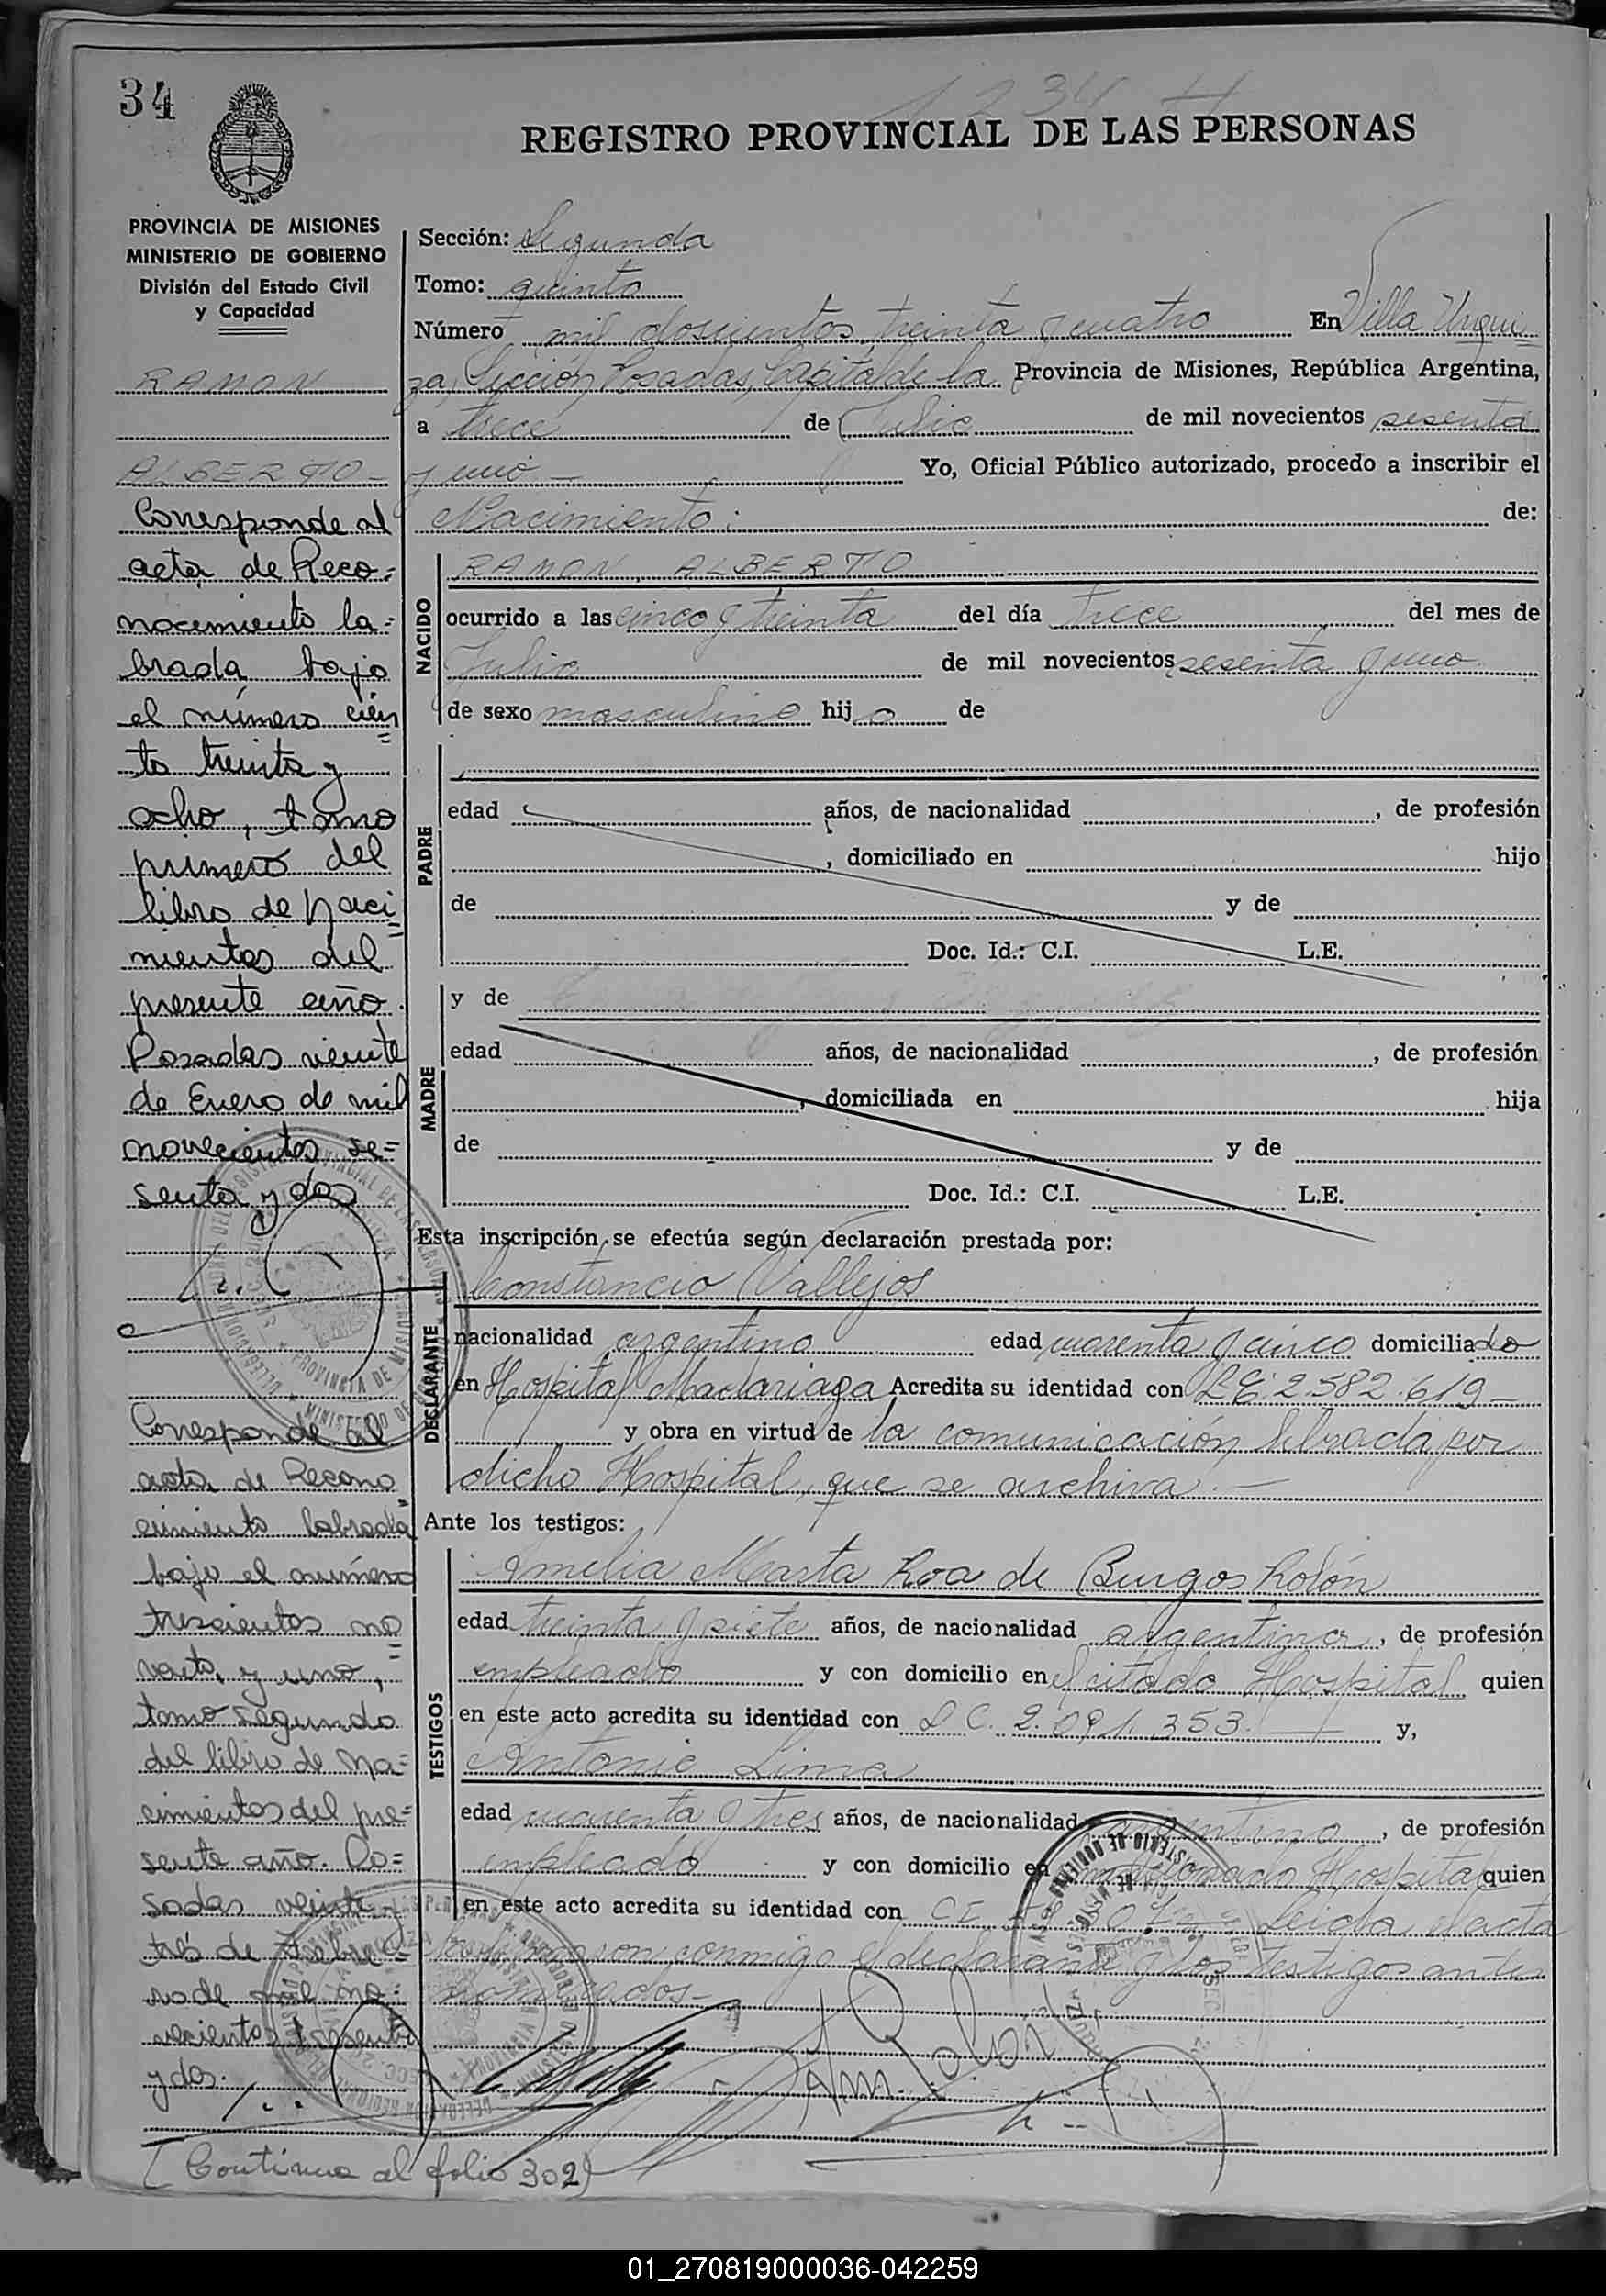 34
1234
REGISTRO PROVINCIAL DE LAS PERSONAS
PROVINCIA DE MISIONES
MINISTERIO DE GOBIERNO
División del Estado Civil
y Capacidad
RAMON
ALBERTO-
Corresponde al
acta de Reco=
nocimiento la=
brada bajo
el número cien
to treinta y
ocho, tomo
primero del
libro de Naci
mientos del
presente año.
Posadas veinte
de Enero de mil
novecientos se=
senta y dos
Corresponde al
acta de Recono
cimiento labrada
bajo el número
trescientos no
venta y uno,
tomo segundo
del libro de Na=
cimientos del pre=
sente año. Po=
sadas veinte y
tres de Febre=
ro de mil no=
vecientos sesenta
y dos.
Sección: Segunda
Tomo: quinto
Número mil doscientos treinta y cuatro En Villa Urqui
za, Sección Posadas, Capital de la Provincia de Misiones, República Argentina,
a trece de Julio de mil novecientos sesenta
y uno.- Yo, Oficial Público autorizado, procedo a inscribir el
Nacimiento: de:
NACIDO
RAMON ALBERTO
ocurrido a las cinco y treinta del día trece del mes de
Julio de mil novecientos sesenta y uno
de sexo masculino hijo de
PADRE
edad años, de nacionalidad , de profesión
, domiciliado en hijo
de y de
Doc. Id.: C.I. L.E.
MADRE
y de
edad años, de nacionalidad , de profesión
, domiciliada en hija
de y de
Doc. Id.: C.I. L.E.
Esta inscripción se efectúa según declaración prestada por:
DECLARANTE
Constancio Vallejos
nacionalidad argentino edad cuarenta y cinco domiciliado
en Hospital Madariaga Acredita su identidad con L.E. 2.582.619-
y obra en virtud de la comunicación librada por
dicho Hospital, que se archiva.-
Ante los testigos:
TESTIGOS
Amelia Marta Roa de Burgos Rolón
edad treinta y siete años, de nacionalidad argentina, de profesión
empleado y con domicilio en el citado Hospital quien
en este acto acredita su identidad con L.C. 2.091.353.- y,
Antonio Lima
edad cuarenta y tres años, de nacionalidad argentino, de profesión
empleado y con domicilio en mencionado Hospital quien
en este acto acredita su identidad con C.I. Leída el acta
conmigo el declarante y los testigos antes
nombrados-
(Continua al folio 302)
01_270819000036-042259